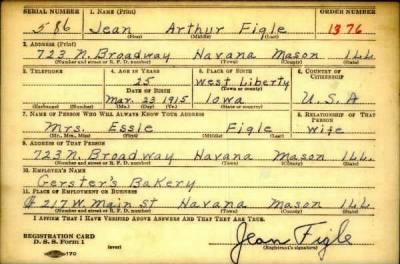 SERIAL NUMBER 1. NAME (Print) ORDER NUMBER
586 Jean Arthur Figle 1376
(First) (Middle) (Last)
2. ADDRESS (Print)
723 N. Broadway Havana Mason Ill.
(Number and street or R. F. D. number) (Town) (County) (State)
3. TELEPHONE 4. AGE IN YEARS 5. PLACE OF BIRTH 6. COUNTRY OF CITIZENSHIP
25 West Liberty
DATE OF BIRTH (Town or county)
Mar. 23 1915 Iowa U.S.A
(Exchange) (Number) (Mo.) (Day) (Yr.) (State or country)
7. NAME OF PERSON WHO WILL ALWAYS KNOW YOUR ADDRESS 8. RELATIONSHIP OF THAT PERSON
Mrs. Essie Figle wife
(Mr., Mrs., Miss) (First) (Middle) (Last)
9. ADDRESS OF THAT PERSON
723 N. Broadway Havana Mason Ill.
(Number and street or R. F. D. number) (Town) (County) (State)
10. EMPLOYER'S NAME
Gerster's Bakery
11. PLACE OF EMPLOYMENT OR BUSINESS
217 W. Main St Havana Mason Ill.
(Number and street or R. F. D. number) (Town) (County) (State)
I AFFIRM THAT I HAVE VERIFIED ABOVE ANSWERS AND THAT THEY ARE TRUE.
REGISTRATION CARD
D. S. S. Form 1 (over) Jean Figle
(Registrant's signature)